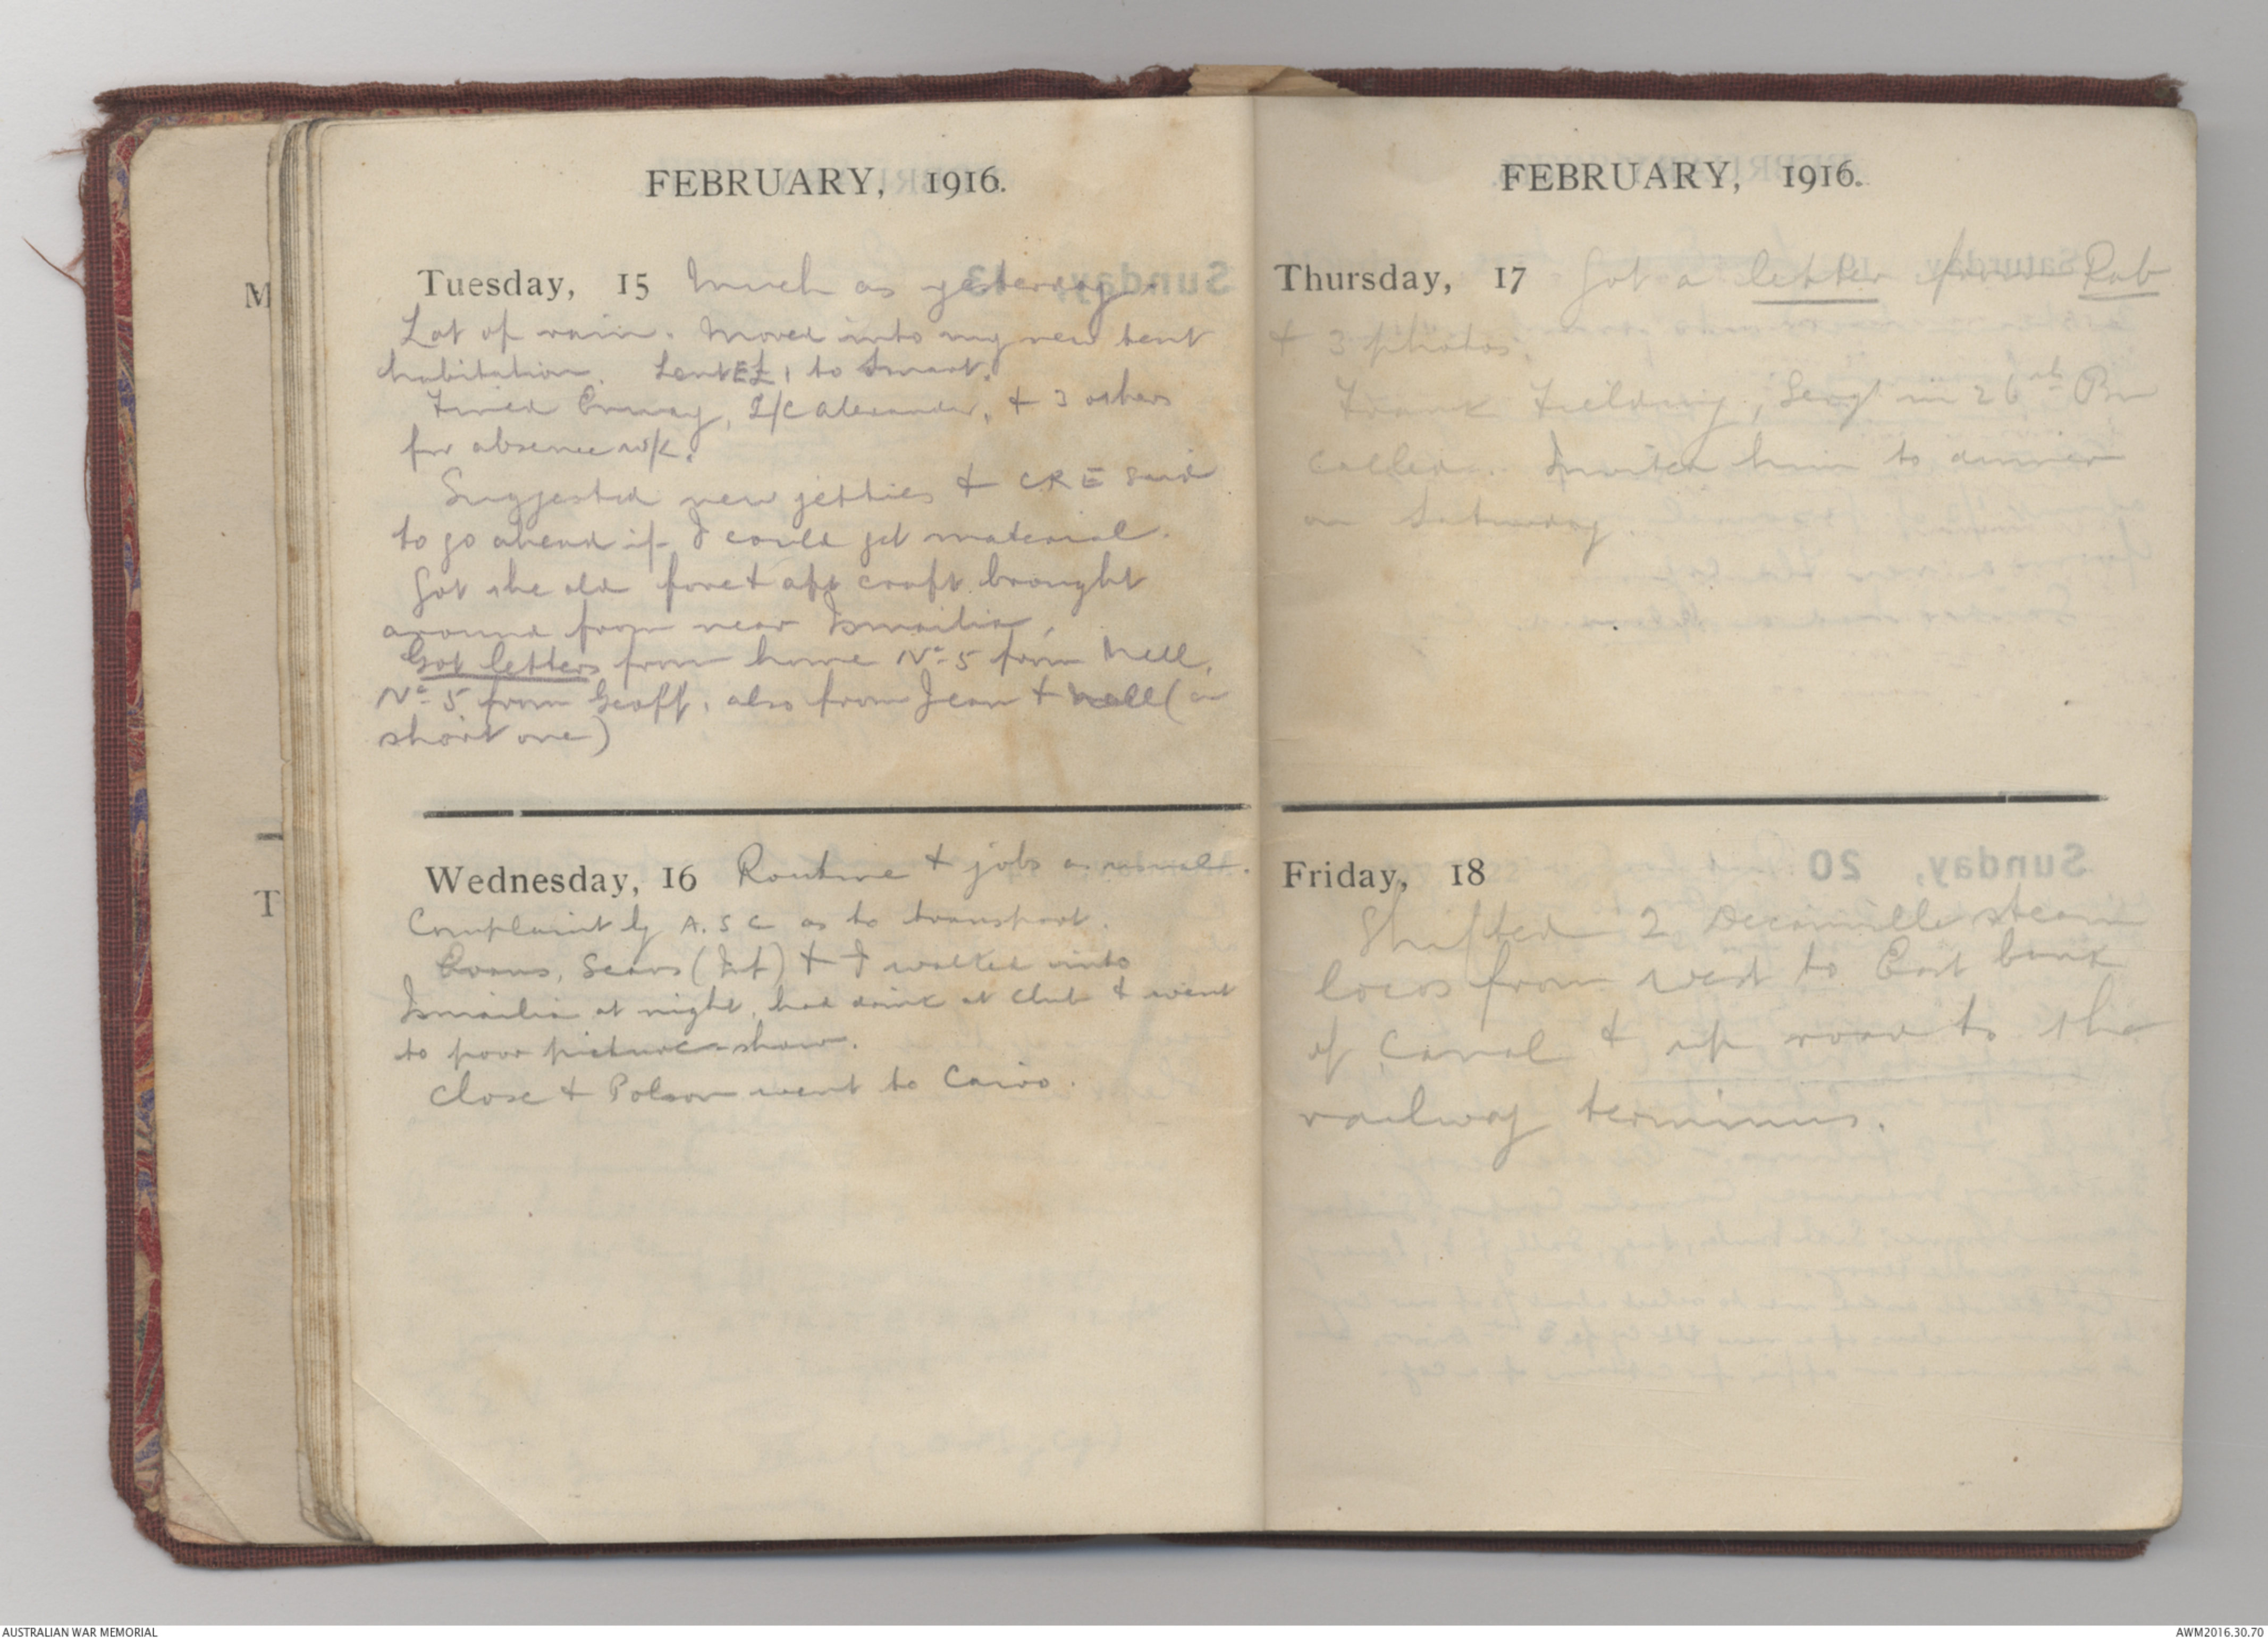 M
T
FEBRUARY, 1916.
Tuesday, 15 Much as yesterday.
Lot of rain. Moved into my new tent
habitation. Lent £E1 to Smart.
Fined , 2/c Alexander, + 3 others
for absence w/k.
Suggested new jetties + CRE said
to go ahead if I could get material.
Got the old fore & aft craft brought
around from near Ismailia.
Got letters from home No 5 from Nell,
No 5 from Geoff, also from Jean + Nell (a
short one)
Wednesday, 16 Routine + jobs as usual.
Complaint by A.S.C as to transport.
Evans, Sears (Inf) + I walked into
Ismailia at night, had drink at club & went
to poor picture-show.
Close + Polson went to Cairo.
FEBRUARY, 1916.
Thursday, 17 Got a letter from Rob
+ 3 photos.
Frank Fielding, Sergt in 26th Bn
called. Invited him to dinner
on Saturday.
Friday, 18
Shifted 2 Decauville steam
locos from west to East bank
of Canal & up road to the
railway terminus.
AUSTRALIAN WAR MEMORIAL
AWM2016.30.70